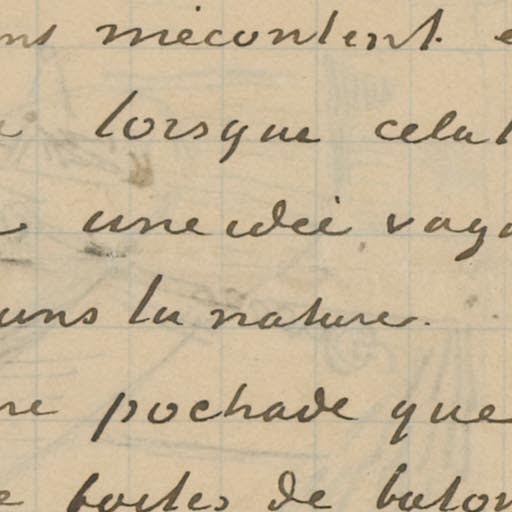 ns mécontent e
lorsque cela
une idée vagu
ans la nature.
ne pochade que
e fortes de baton